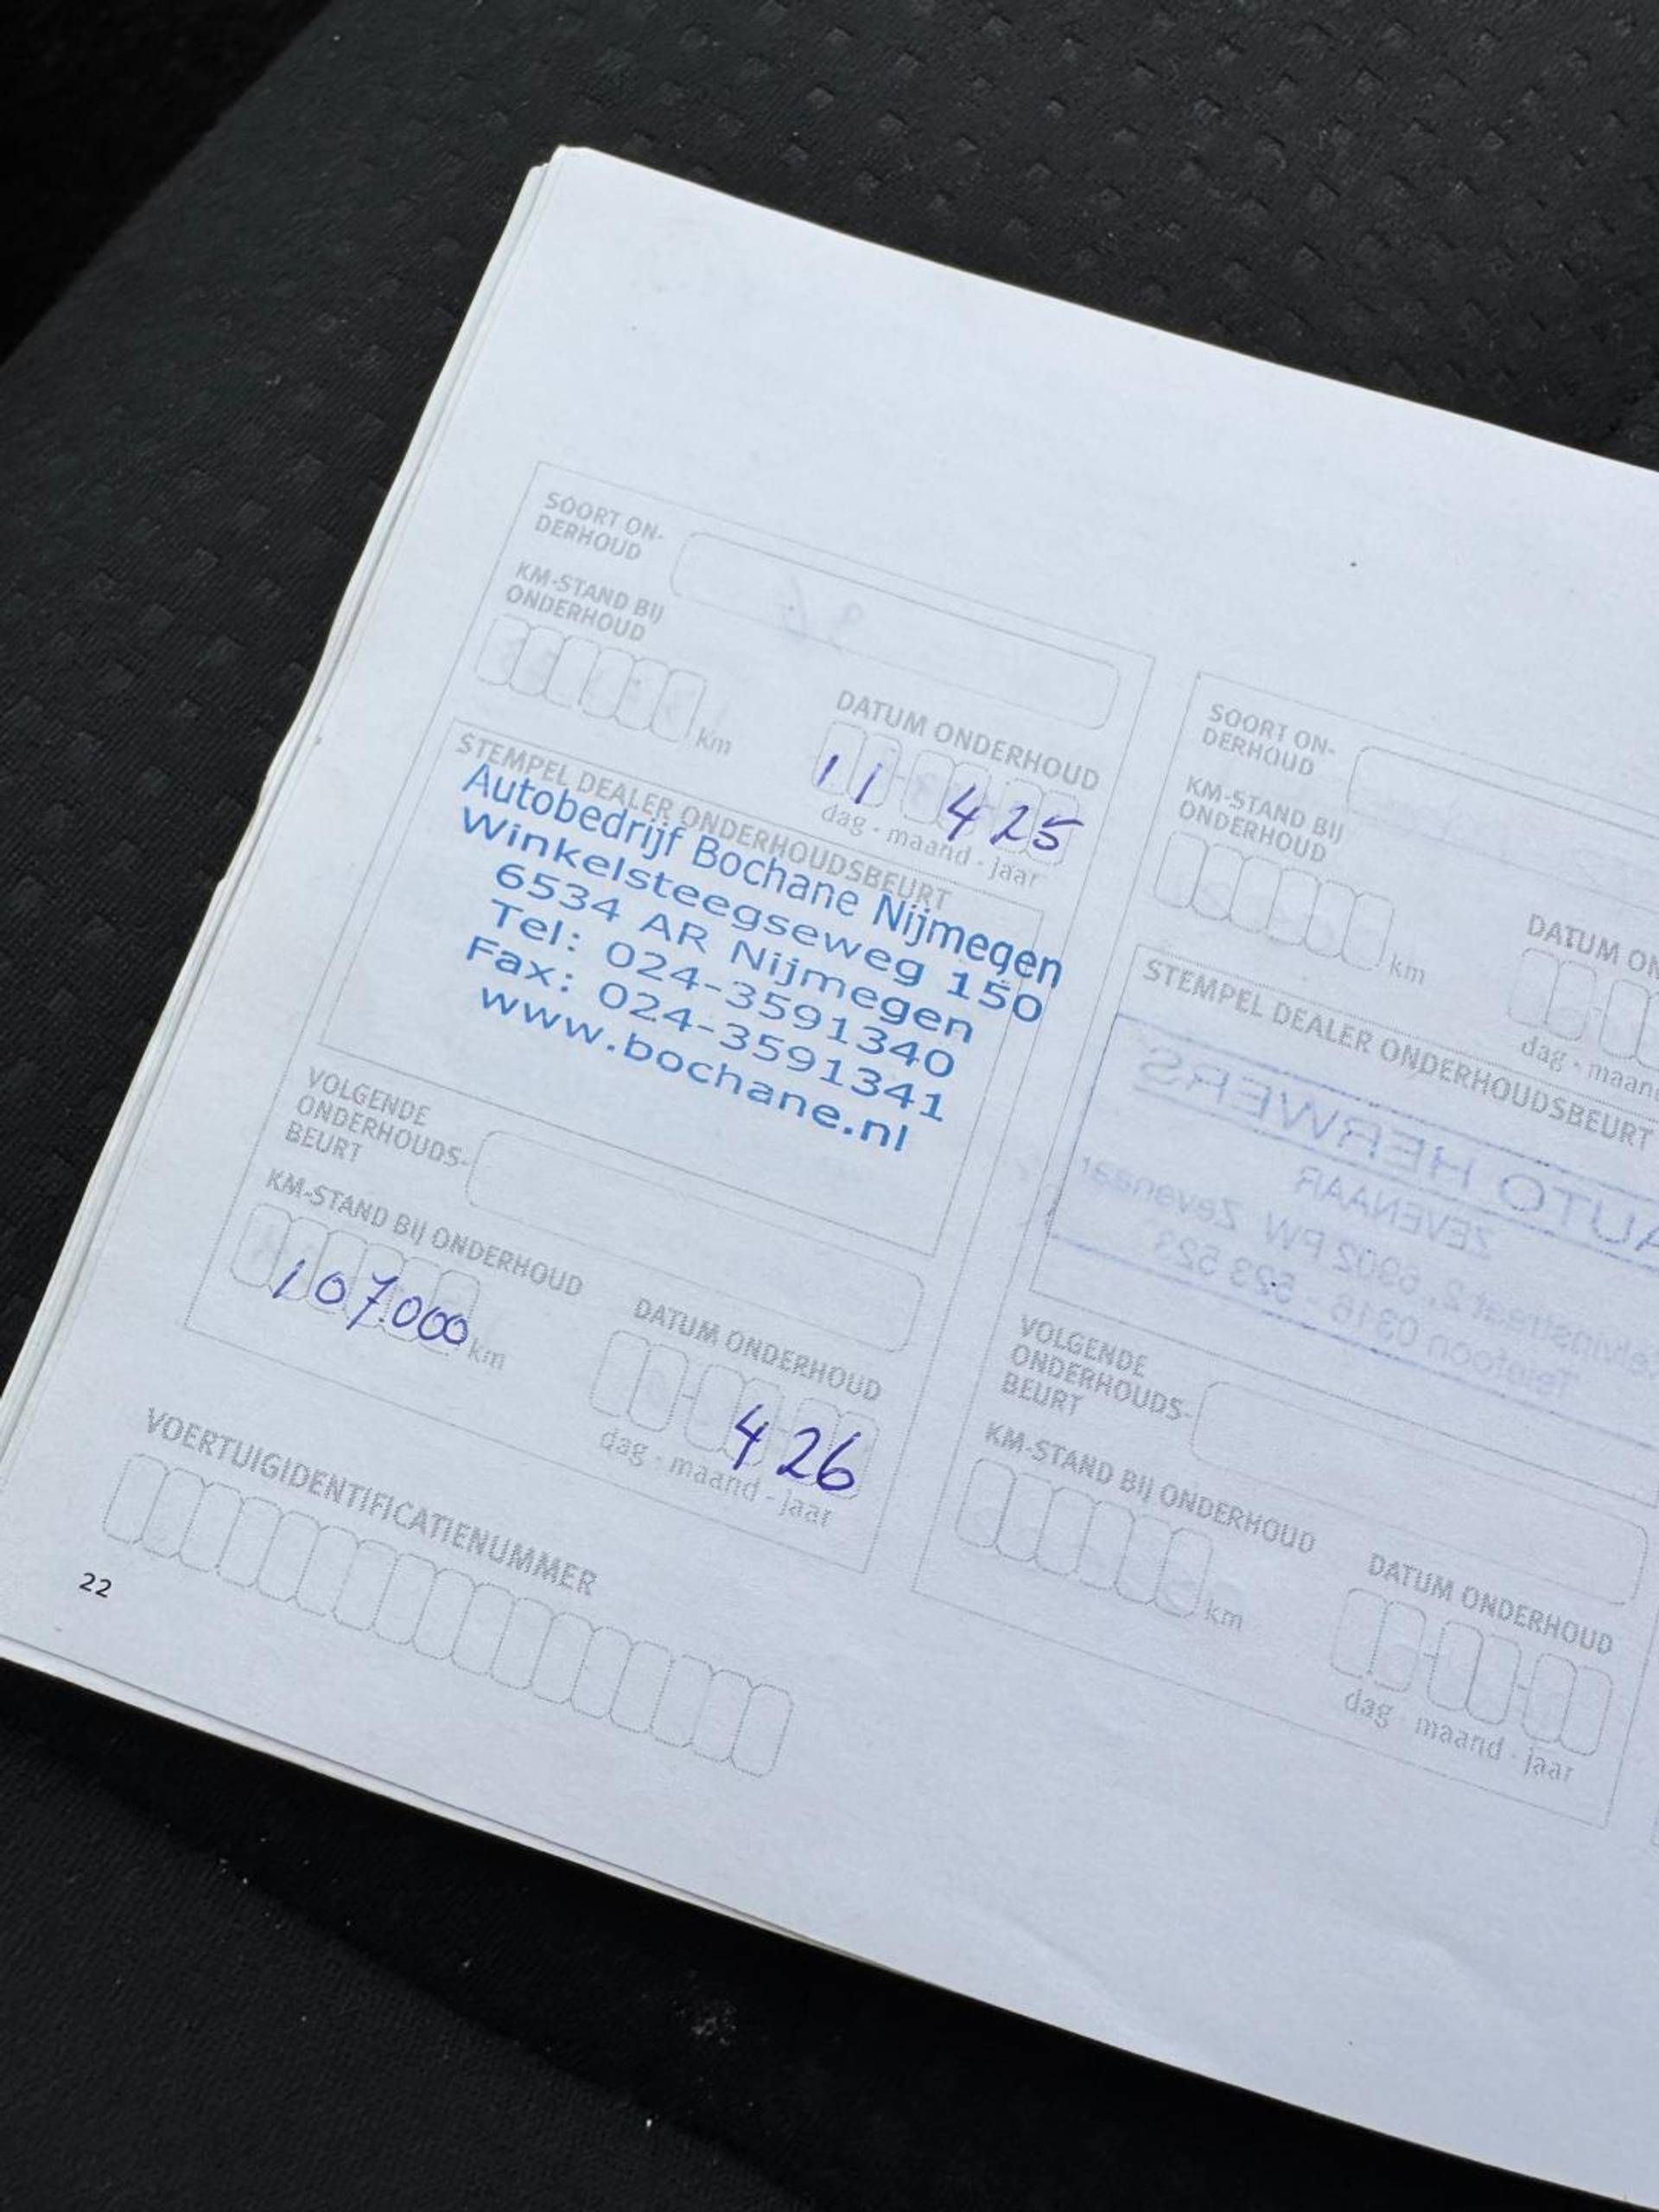 SOORT ON-
DERHOUD
KM-STAND BIJ
ONDERHOUD
km
DATUM ONDERHOUD
11 4 25
dag - maand - jaar
STEMPEL DEALER ONDERHOUDSBEURT
Autobedrijf Bochane Nijmegen
Winkelsteegseweg 150
6534 AR Nijmegen
Tel: 024-3591340
Fax: 024-3591341
www.bochane.nl
VOLGENDE
ONDERHOUDS-
BEURT
KM-STAND BIJ ONDERHOUD
107.000 km
DATUM ONDERHOUD
4 26
dag - maand - jaar
VOERTUIGIDENTIFICATIENUMMER
22
SOORT ON-
DERHOUD
KM-STAND BIJ
ONDERHOUD
km
DATUM ON
dag - maan
STEMPEL DEALER ONDERHOUDSBEURT
AUTO HERWERS
ZEVENAAR
2, 6902 PW Zevenaar
Telefoon 0316 - 523 523
VOLGENDE
ONDERHOUDS-
BEURT
KM-STAND BIJ ONDERHOUD
km
DATUM ONDERHOUD
dag - maand - jaar